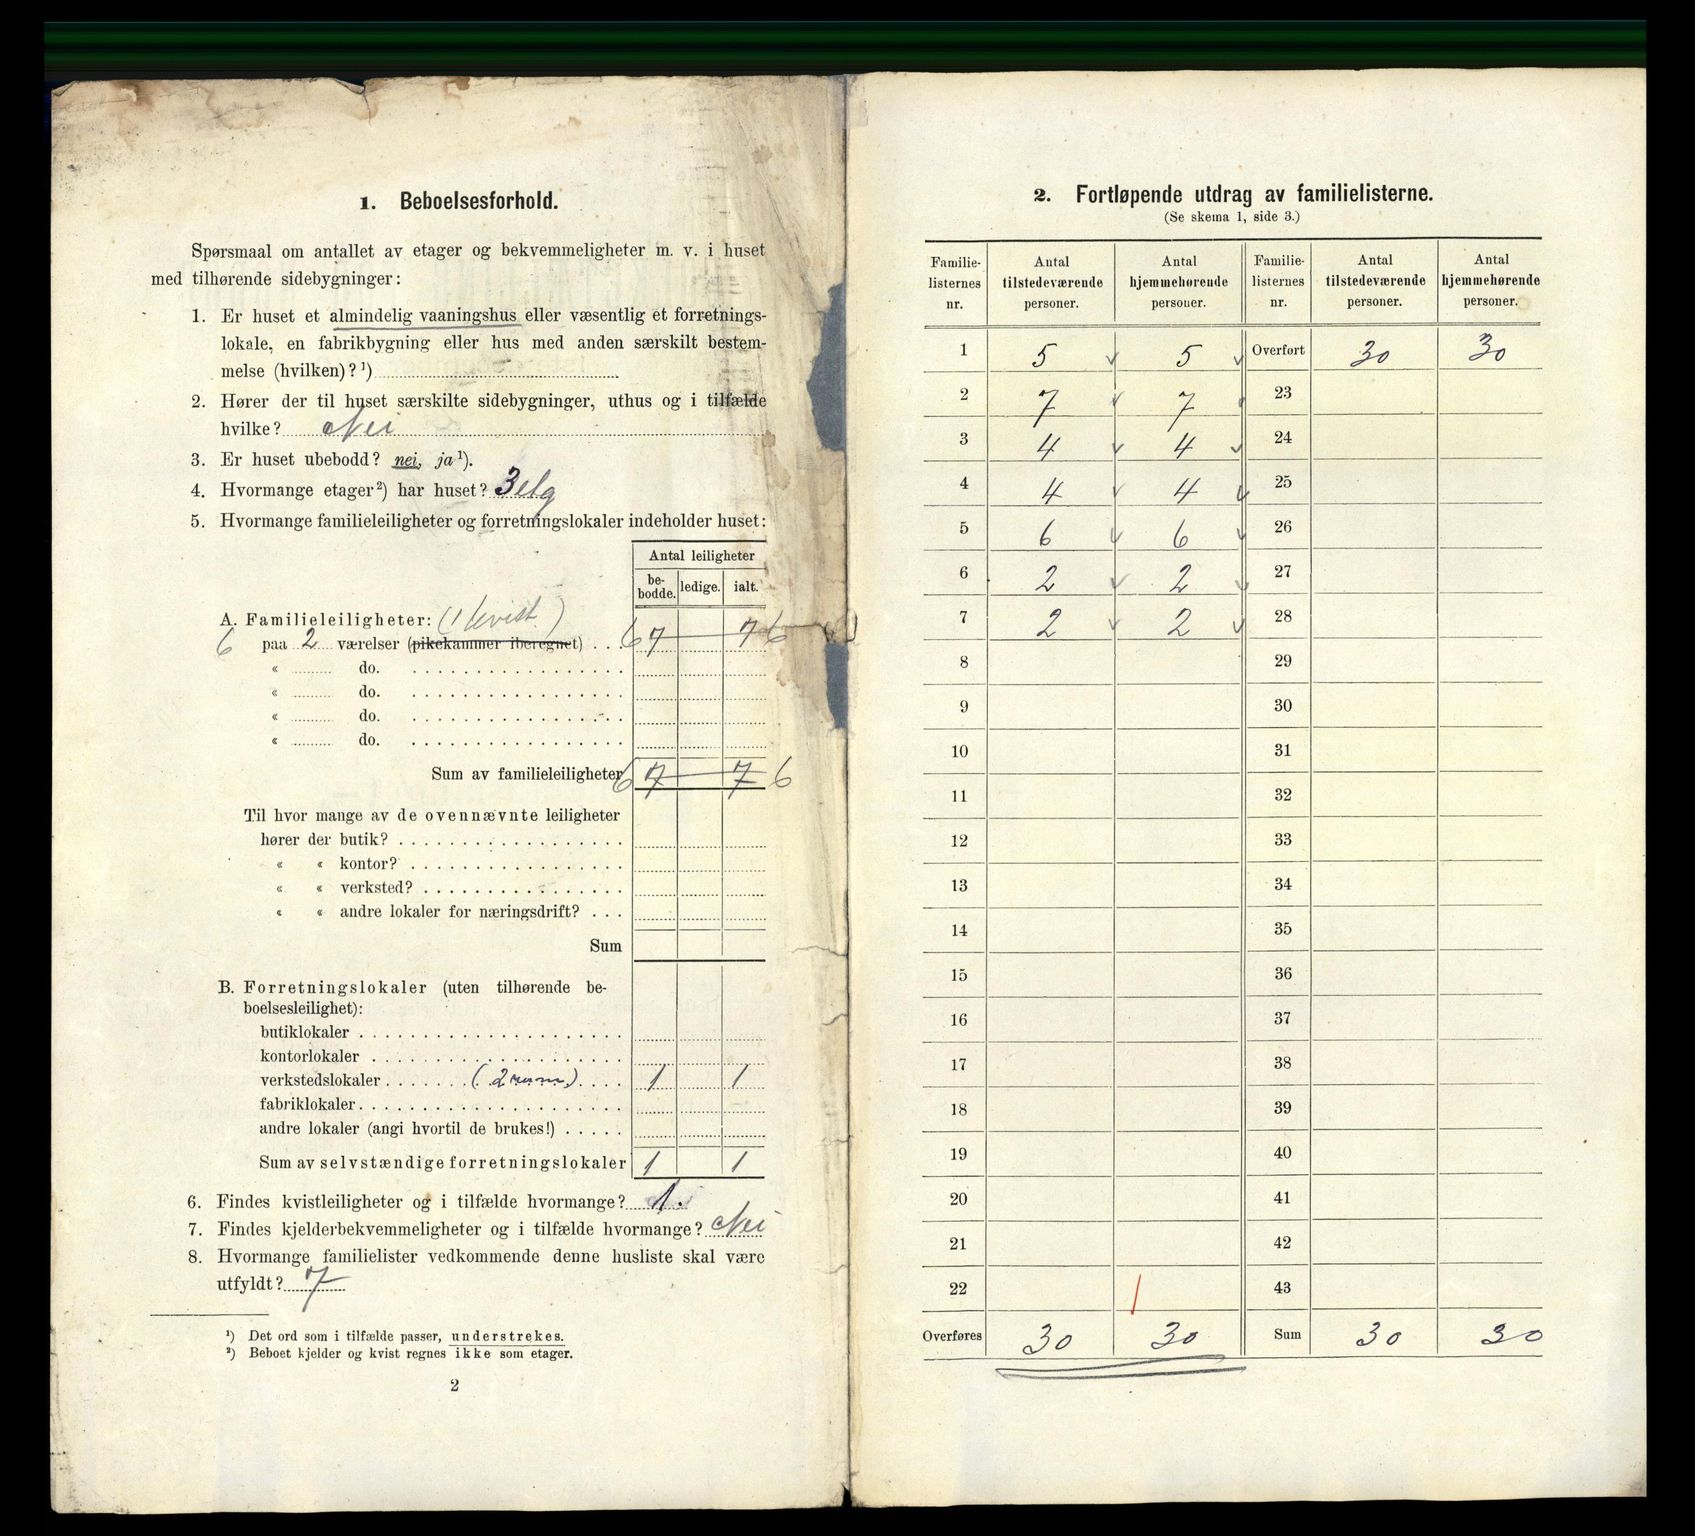 1. Beboelsesforhold.
Spørsmaal om antallet av etager og bekvemmeligheter m. v. i huset
med tilhørende sidebygninger:
1. Er huset et almindelig vaaningshus eller væsentlig et forretnings-
lokale, en fabrikbygning eller hus med anden særskilt bestem-
melse (hvilken)? ¹)
2. Hører der til huset særskilte sidebygninger, uthus og i tilfælde
hvilke? Nei
3. Er huset ubebodd? nei, ja ¹).
4. Hvormange etager ²) har huset? 3 etg
5. Hvormange familieleiligheter og forretningslokaler indeholder huset:
Antal leiligheter
be-bodde. ledige. ialt.
A. Familieleiligheter: (1 kvist)
6 paa 2 værelser (pikekammer iberegnet) . . . 6 7 7 6
« do.
« do.
« do.
« do.
Sum av familieleiligheter 6 7 7 6
Til hvor mange av de ovennævnte leiligheter
hører der butik?
« « kontor?
« « verksted?
« « andre lokaler for næringsdrift? . . .
Sum
B. Forretningslokaler (uten tilhørende be-
boelsesleilighet):
butiklokaler
kontorlokaler
verkstedslokaler (2 rum) 1 1
fabriklokaler
andre lokaler (angi hvortil de brukes!)
Sum av selvstændige forretningslokaler 1 1
6. Findes kvistleiligheter og i tilfælde hvormange? 1.
7. Findes kjelderbekvemmeligheter og i tilfælde hvormange? Nei
8. Hvormange familielister vedkommende denne husliste skal være
utfyldt? 7
¹) Det ord som i tilfælde passer, understrekes.
²) Beboet kjelder og kvist regnes ikke som etager.
2
2. Fortløpende utdrag av familielisterne.
(Se skema 1, side 3.)
Familie-listernes nr. Antal tilstedeværende personer. Antal hjemmehørende personer. Familie-listernes nr. Antal tilstedeværende personer. Antal hjemmehørende personer.
1 5 ✓ 5 ✓ Overført 30 30
2 7 ✓ 7 ✓ 23
3 4 ✓ 4 ✓ 24
4 4 ✓ 4 ✓ 25
5 6 ✓ 6 ✓ 26
6 2 ✓ 2 ✓ 27
7 2 ✓ 2 ✓ 28
8 29
9 30
10 31
11 32
12 33
13 34
14 35
15 36
16 37
17 38
18 39
19 40
20 41
21 42
22 1 43
Overføres 30 30 Sum 30 30